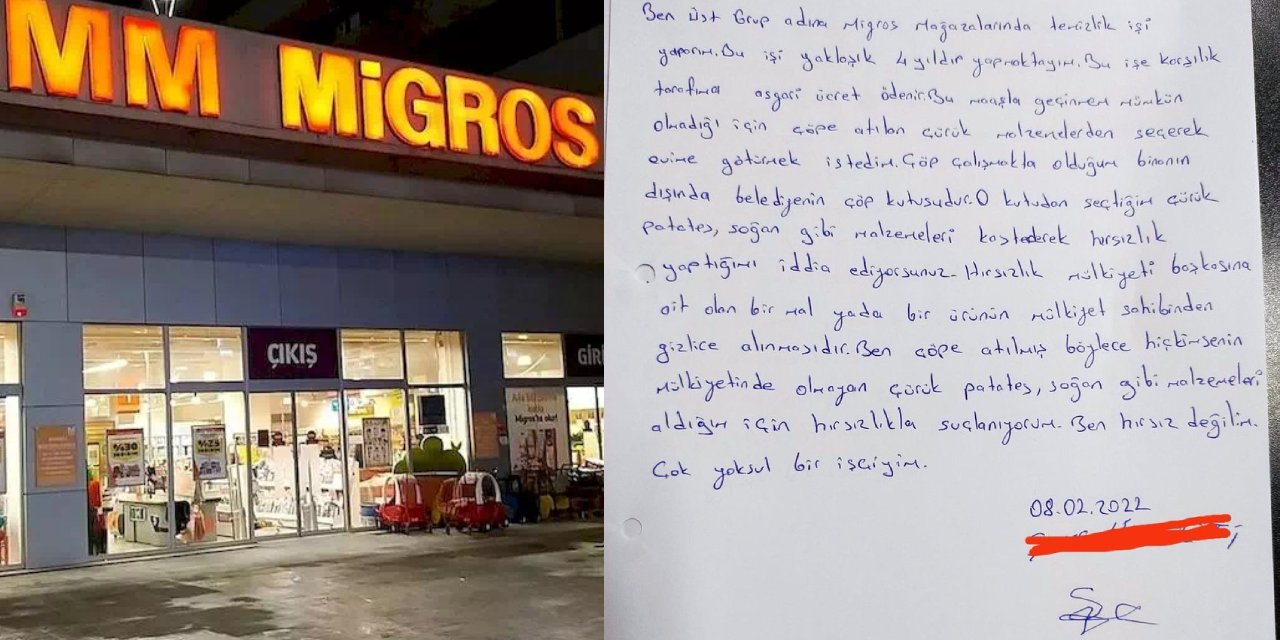 MM MiGROS
ÇIKIŞ
GİRİ
%30
%25
Migros'ta olur!
Ben Üst Grup adına Migros Mağazalarında temizlik işi
yaparım. Bu işi yaklaşık 4 yıldır yapmaktayım. Bu işe karşılık
tarafıma asgari ücret ödenir. Bu maaşla geçinmem mümkün
olmadığı için çöpe atılan çürük malzemelerden seçerek
evime götürmek istedim. Çöp çalışmakta olduğum binanın
dışında belediyenin çöp kutusudur. O kutudan seçtiğim çürük
patates, soğan gibi malzemeleri kastederek hırsızlık
yaptığımı iddia ediyorsunuz. Hırsızlık mülkiyeti başkasına
ait olan bir mal yada bir ürünün mülkiyet sahibinden
gizlice alınmasıdır. Ben çöpe atılmış böylece hiçkimsenin
mülkiyetinde olmayan çürük patates, soğan gibi malzemeleri
aldığım için hırsızlıkla suçlanıyorum. Ben hırsız değilim.
Çok yoksul bir işçiyim.
08.02.2022